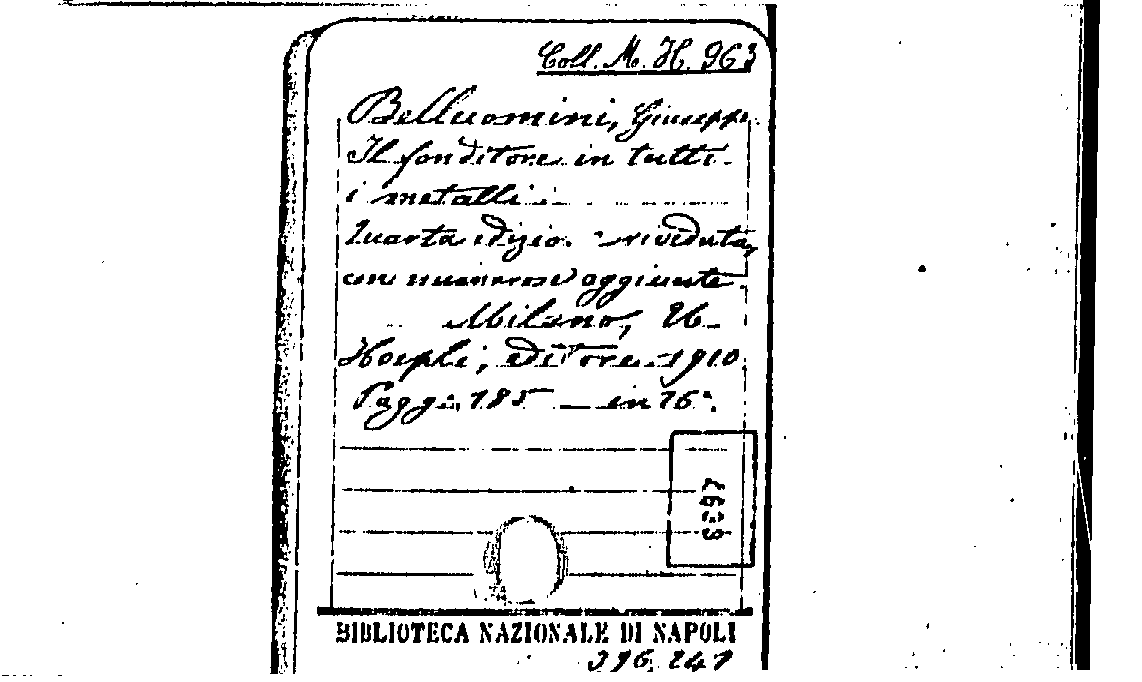 Coll. M. H. 963
Belluomini, Giuseppe.
Il fonditore in tutti
i metalli.
Quarta edizio. riveduta,
con numerose aggiunte.
Milano, U.
Hoepli, editore 1910.
Pagg. 185 — in 16°.
BIBLIOTECA NAZIONALE DI NAPOLI